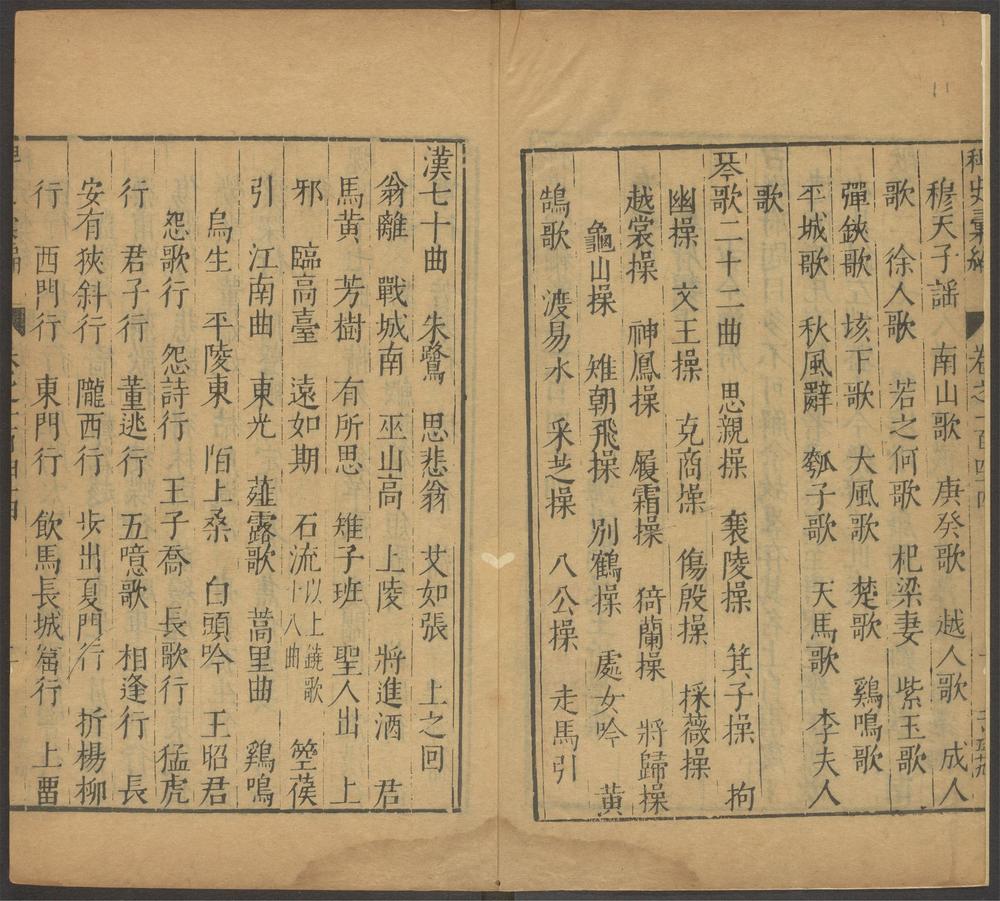 稗史彙編 卷之一百四十四
穆天子謡 南山歌 庚癸歌 越人歌 成人
歌 徐人歌 若之何歌 杞梁妻 紫玉歌
彈鋏歌 垓下歌 大風歌 楚歌 鷄鳴歌
平城歌 秋風辭 瓠子歌 天馬歌 李夫人
歌
琴歌二十二曲 思親操 襄陵操 箕子操 拘
幽操 文王操 克商操 傷殷操 採薇操
越裳操 神鳳操 履霜操 猗蘭操 將歸操
龜山操 雉朝飛操 別鶴操 處女吟 黄
鵠歌 渡易水 采芝操 八公操 走馬引
漢七十曲 朱鷺 思悲翁 艾如張 上之回
翁離 戰城南 巫山高 上陵 將進酒 君
馬黄 芳樹 有所思 雉子班 聖人出 上
邪 臨高臺 遠如期 石流以上鐃歌十八曲 箜篌
引 江南曲 東光 薤露歌 蒿里曲 鷄鳴
烏生 平陵東 陌上桑 白頭吟 王昭君
怨歌行 怨詩行 王子喬 長歌行 猛虎
行 君子行 董逃行 五噫歌 相逢行 長
安有狹斜行 隴西行 步出夏門行 折楊柳
行 西門行 東門行 飲馬長城窟行 上畱